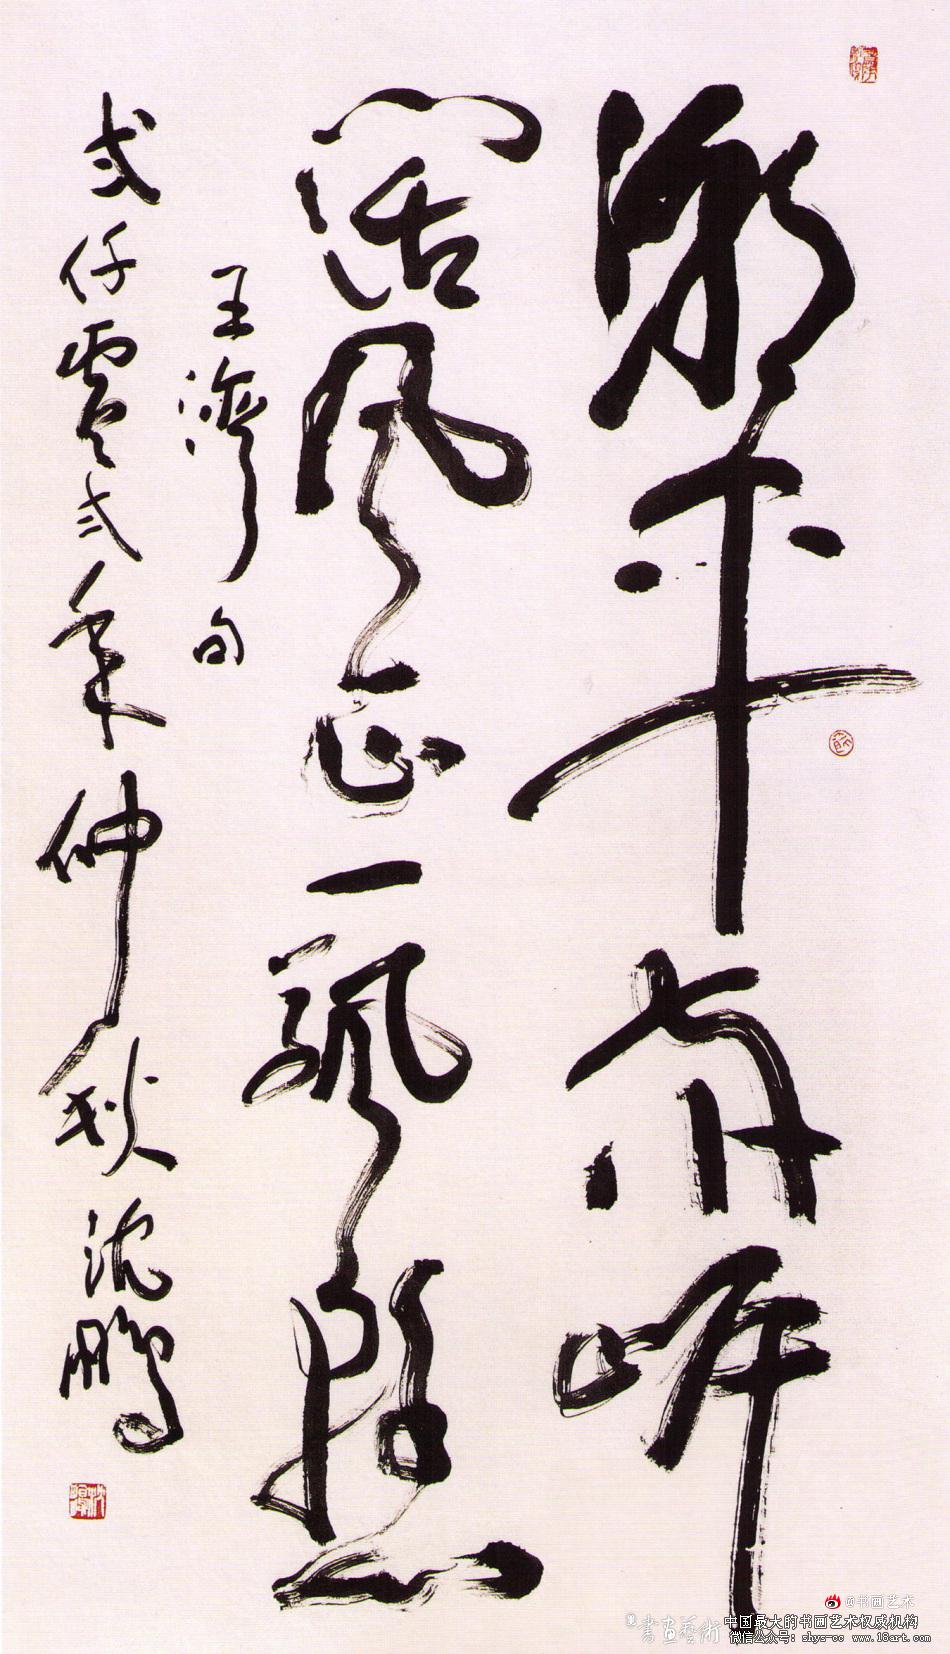 潮平兩岸
闊風正一颿懸
王灣句
弍仟零弍年仲秋沈鵬
@书画艺术
書画藝術
中国最大的书画艺术权威机构
微信公众号：shys-cc www.18art.com